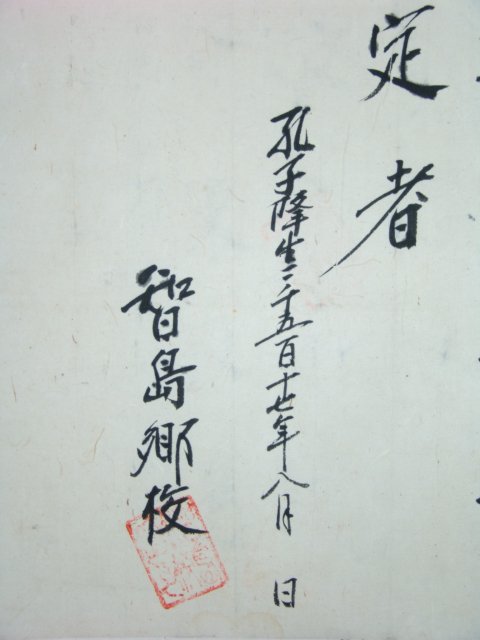 定者
孔子降生二千五百十七年八月 日
智島鄉校